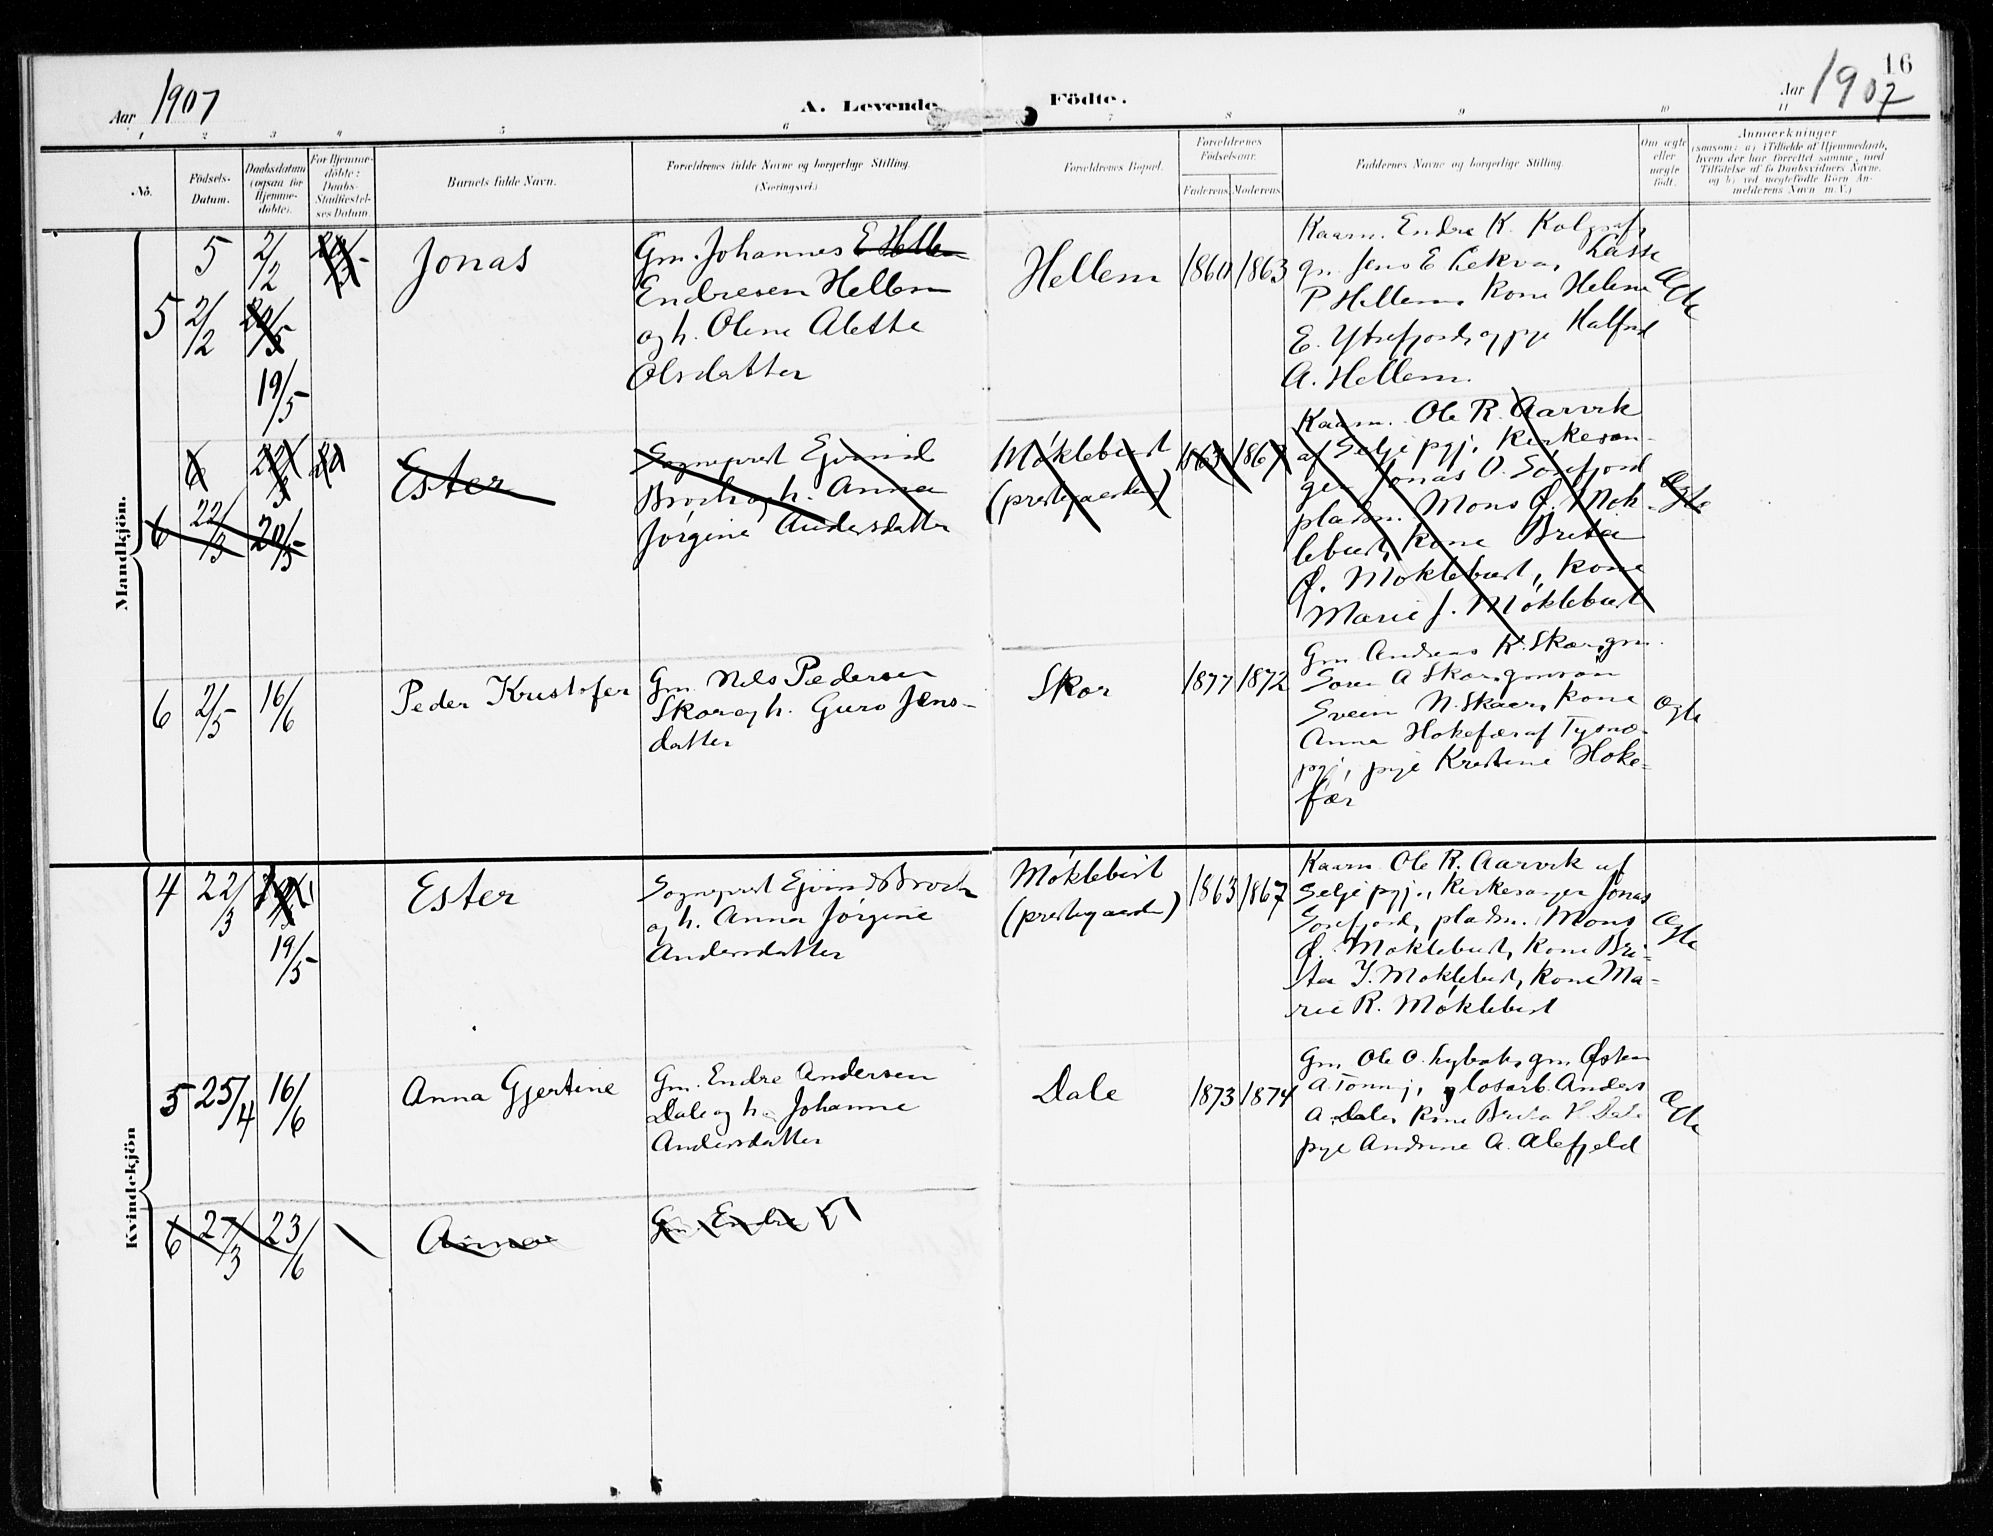 Aar 1907
A. Levende
Födte.
Aar 1907
16
1 2 3 4 5 6 7 8 9 10 11
No.
Födsels-
Datum.
Daabsdatum
(ogsaa for
Hjemme-
döbte).
For Hjemme-
döbte:
Daabs-
Stadfæstel-
ses Datum.
Barnets fulde Navn.
Forældrenes fulde Navne og borgerlige Stilling.
(Næringsvei.)
Forældrenes Bopæl.
Forældrenes
Födselsaar.
Faderens Moderens
Faddernes Navne og borgerlige Stilling.
Om ægte
eller
uægte
födt.
Anmærkninger
(saasom: a) i Tilfælde af Hjemmedaab,
hvem der har forrettet samme, med
Tilföielse af to Daabsvidners Navne,
og b) ved uægtefödte Börn An-
melderens Navn m. V.)
Mandkjön.
5
2/2
5
2/2
19/5
Jonas
Gm. Johannes E Hellem
Endresen Hellem
og h. Oline Alette
Olsdatter
Hellem
1860 1863
Kaarm. Endre K.
gm. Jens E. Lekva, Lasse
P Hellem, kone Helene
E. Ytrefjord, og pige
A. Hellem.
Ægte
6
22/3
20/5
Ester
Sogneprest Ejvind
Broch og h. Anna
Jørgine Andersdatter
Møklebust
(prestegaarden)
1863 1867
Kaarm. Ole R. Aarvik
af Selje pgj., Kirkesan-
ger Jonas O. Sørefjord
pladsm. Mons Ø. Møk-
lebust, kone Brita
Ø. Møklebust, kone
Marie J. Møklebust
Ægte
6
2/5
16/6
Peder Kristofer
Gm. Nels Pedersen
Skor og h. Guro Jens-
datter
Skor
1877 1872
Gm. Andreas K. Skor, gm.
Soren A Skor, gmsøn
Svein N. Skaar, kone
Anna Hokefær af Tysnæs
pgj., pige Kristine Hoke-
fær
Ægte
Kvindekjön
4
22/3
19/5
Ester
Sogneprest Ejvind Broch
og h. Anna Jørgine
Andersdatter
Møklebust
(prestegaarden)
1863 1867
Kaarm. Ole R. Aarvik af
Selje pgj., Kirkesanger Jonas
Sørefjord, pladsm. Mons
Ø. Møklebust, kone Bri-
ta J. Møklebust, kone Ma-
rie R. Møklebust
Ægte
5
25/4
16/6
Anna Gjertine
Gm. Endre Andersen
Dale og h. Johanne
Andersdatter
Dale
1873 1874
Gm. Ole O. gm. Østen
A. losarb. Anders
A. Dale, kone Brita H. Dale
pige Andrine A. Alefjeld
Ægte
6
27/3
23/6
Anna
Gm. Endre